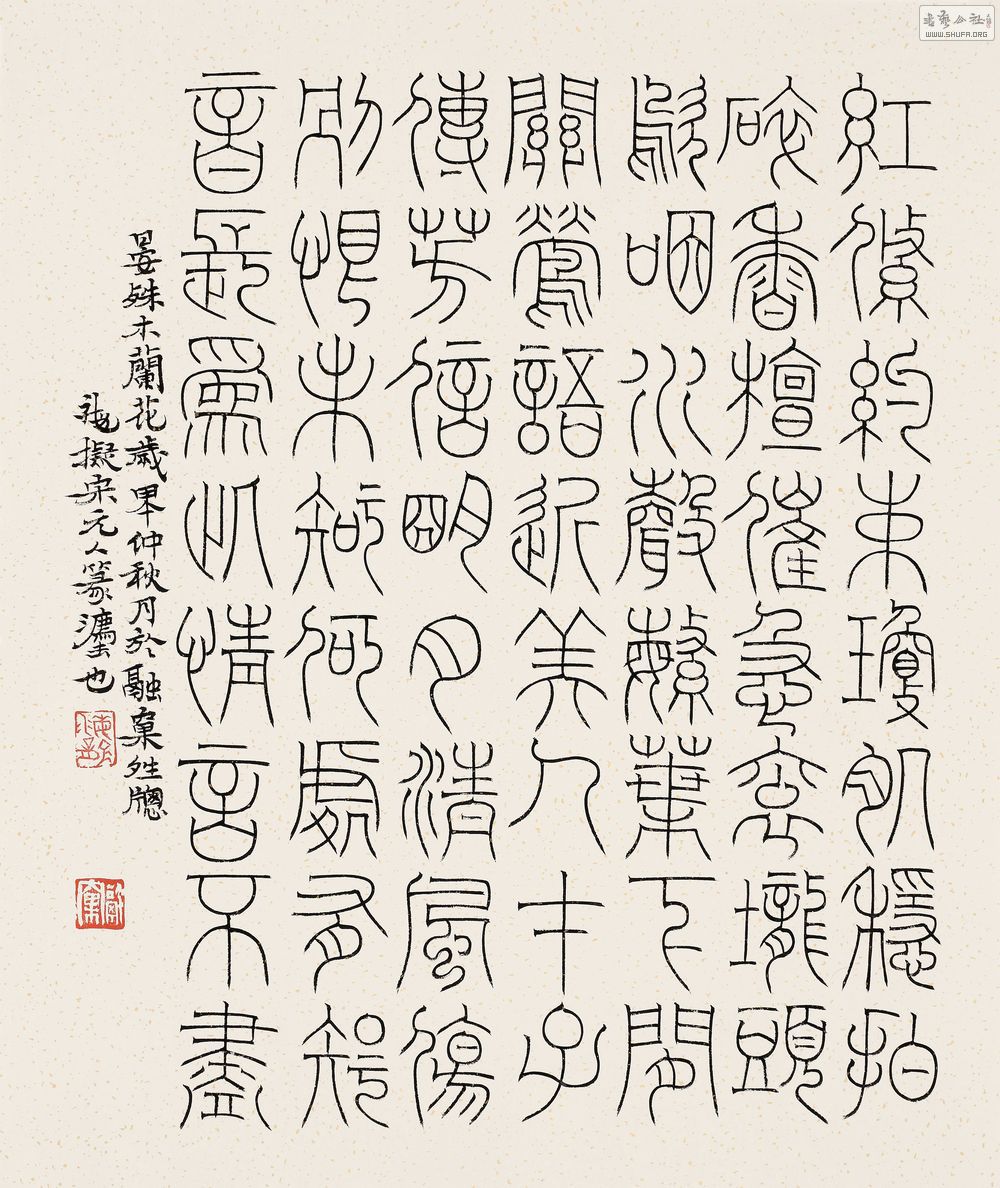 紅絛約束瓊肌穩拍
碎香檀催急袞壠頭
歍咽水聲繁葉下間
關鶯語近美人才子
傳芳信明月清風傷
別恨未知何處有知
音長爲此情言不盡
晏殊木蘭花歲甲午仲秋月於融窠夝牕
擬宋元人篆灋也
書藝公社
WWW.SHUFA.ORG